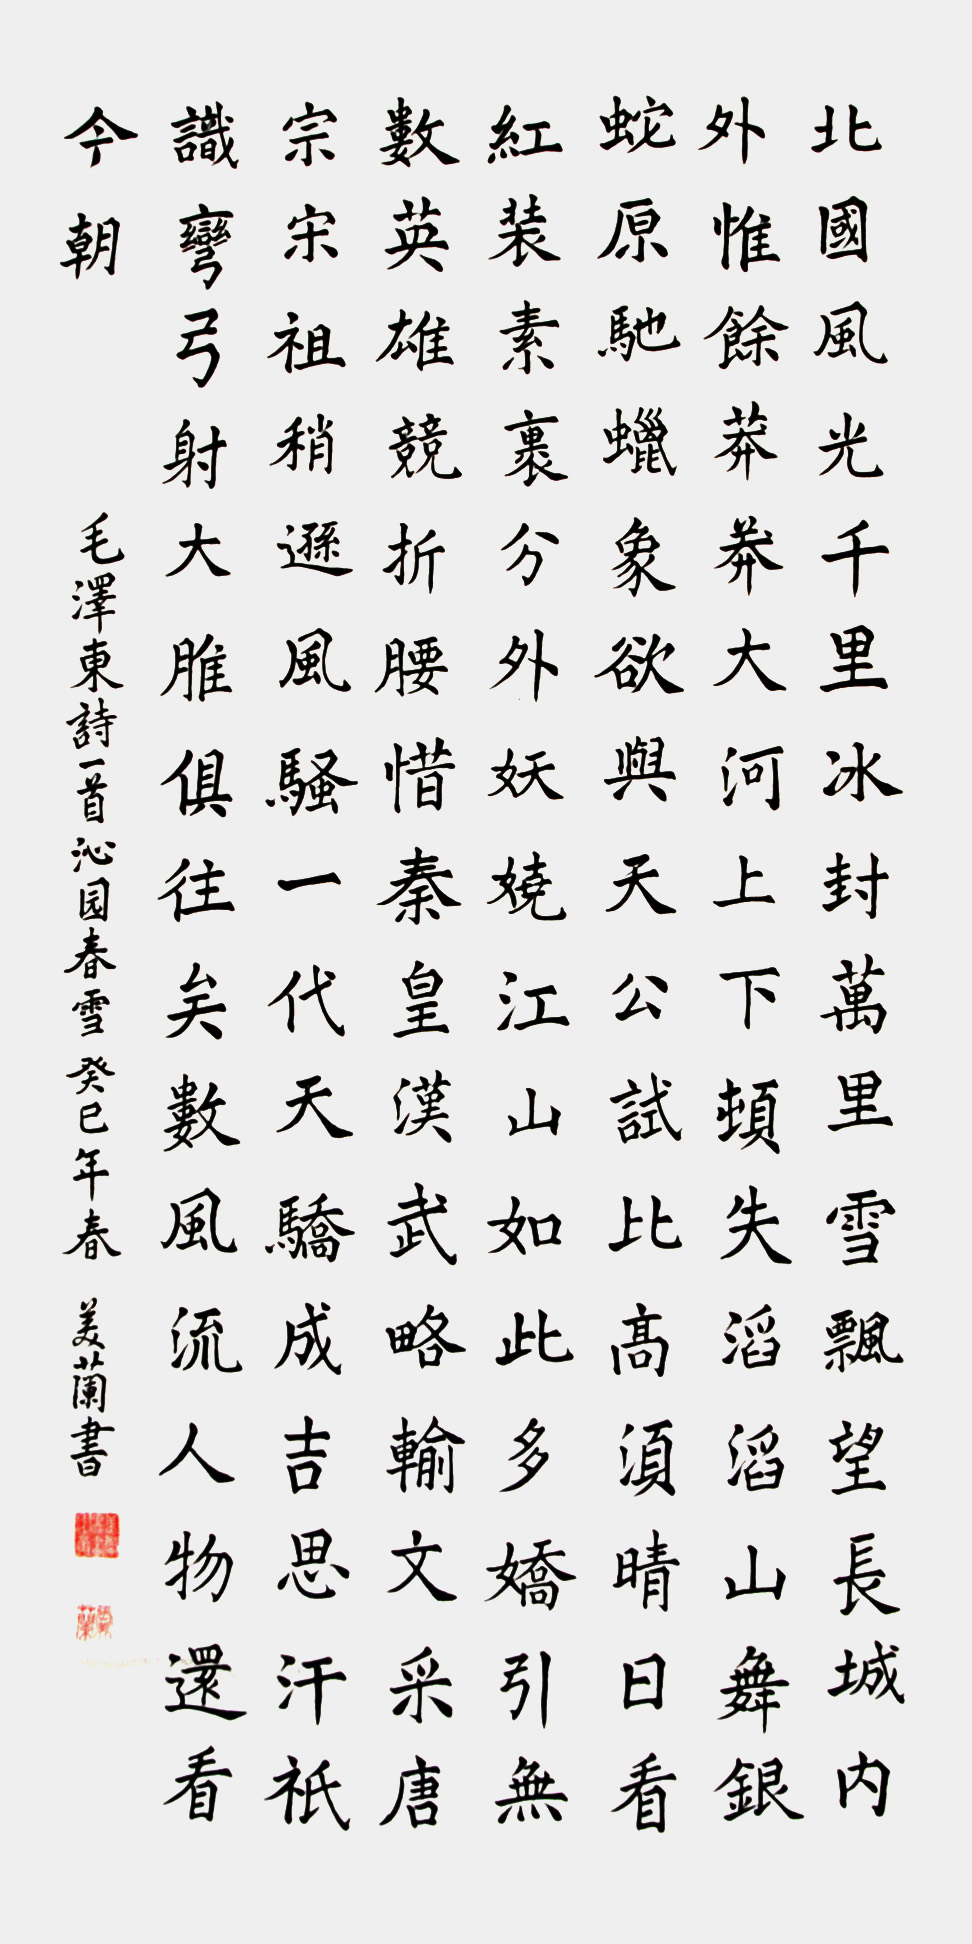 北國風光千里冰封萬里雪飄望長城内
外惟餘莽莽大河上下頓失滔滔山舞銀
蛇原馳蠟象欲與天公試比高須晴日看
紅装素裹分外妖嬈江山如此多嬌引無
數英雄競折腰惜秦皇漢武略輸文采唐
宗宋祖稍遜風騷一代天驕成吉思汗祇
識彎弓射大脽俱往矣數風流人物還看
今朝
毛澤東詩一首沁园春雪癸巳年春 美蘭書